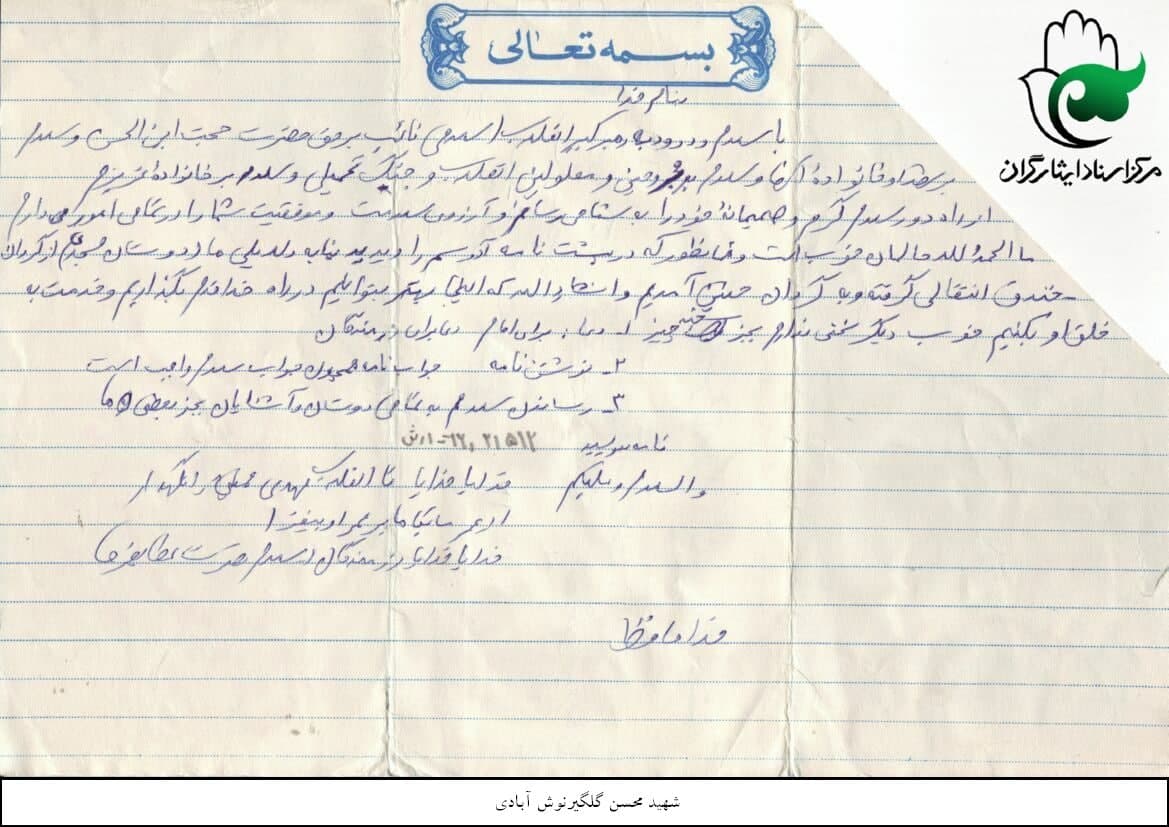 بسمه تعالی
مرکز اسناد ایثارگران
بنام خدا
با سلام و درود به رهبر کبیر انقلاب اسلامی نائب برحق حضرت حجت ابن الحسن و سلام
بر شهدا و خانوادهٔ آنها و سلام بر مجروحین و معلولین انقلاب و جنگ تحمیلی و سلام بر خانوادهٔ عزیزم
از راه دور سلام گرم و صمیمانهٔ خود را به شما می رسانم و آرزوی سلامت و موفقیت شما را در تمامی امور می دارم
ما الحمدُ لله حالمان خوب است و همانطور که در پشت نامه آدرسم را دیدید بنا به دلایلی ما از دوستان از گردان
خندق انتقالی گرفته و به گردان حنین آمدیم و انشاء الله که اینجا بهتر بتوانیم در راه خدا قدم بگذاریم و خدمت به
خلق او بکنیم خوب دیگر سخنی ندارم بجز چند چیز ۱- دعا: برای امام دعا برای رزمندگان
۲- نوشتن نامه جواب نامه همچون جواب سلام واجب است
۳- رساندن سلام به تمامی دوستان و آشنایان بجز بعضی ها
والسلام و علیکم
خدایا خدایا تا انقلاب مهدی خمینی را نگهدار
از عمر ما بکاه بر عمر او بیفزا
خدایا خدایا رزمندگان اسلام نصرت عطا بفرما
خداحافظ
شهید محسن گلگیرنوش آبادی